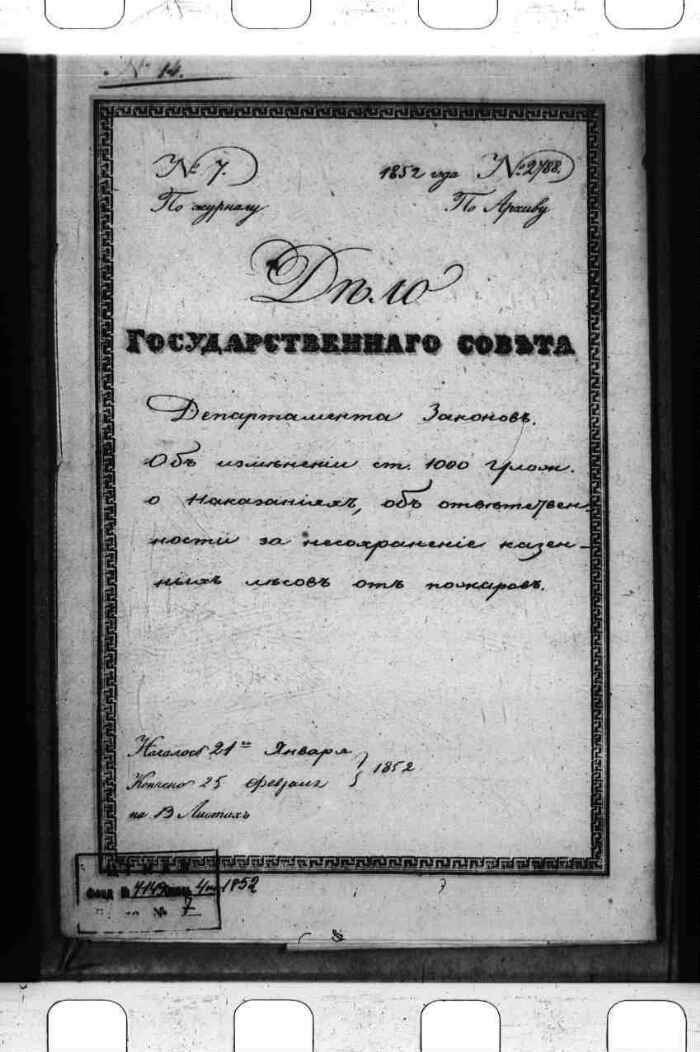 № 14.
№ 7. 1852 года № 2788.
По журналу По Архиву
Дѣло
Государственнаго Совѣта
Департамента Законовъ.
Объ измѣненіи ст. 1000 улож.
о наказаніяхъ, объ отвѣтствен-
ности за несохраненіе казен-
ныхъ лѣсовъ отъ пожаровъ.
Началось 21го Января
Кончено 25 Февраля } 1852
на 13 Листахъ
Фонд № 1149 1852
№ 7